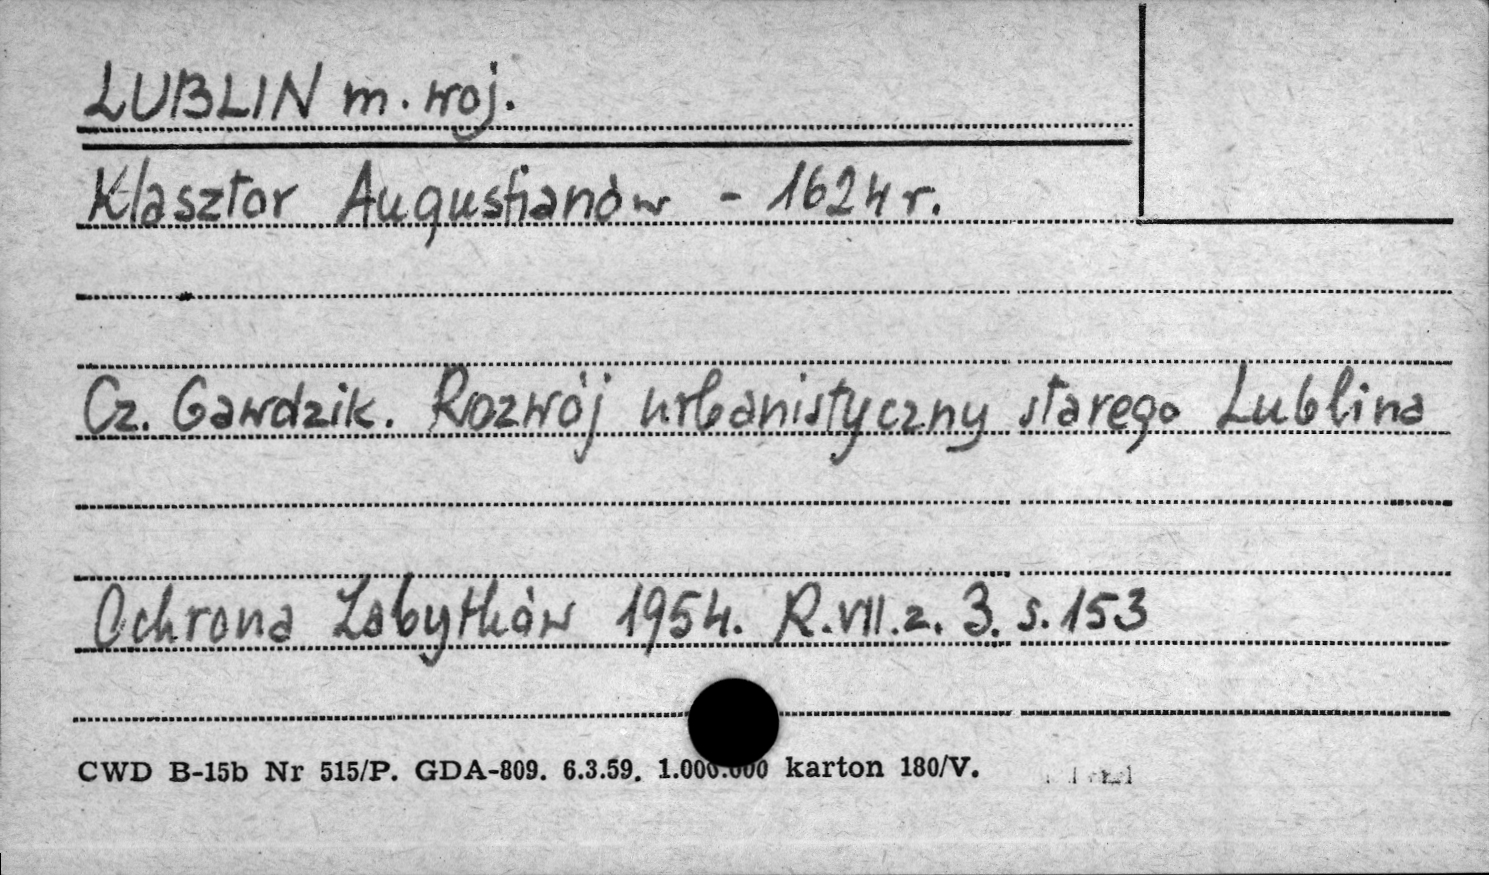 LUBLIN m. woj.
Klasztor Augustianów - 1624 r.
Cz. Gawdzik. Rozwój urbanistyczny starego Lublina
Ochrona Zabytków 1954. R. VII. z. 3. s. 153
CWD B-15b Nr 515/P. GDA-809. 6.3.59. 1.000.000 karton 180/V.